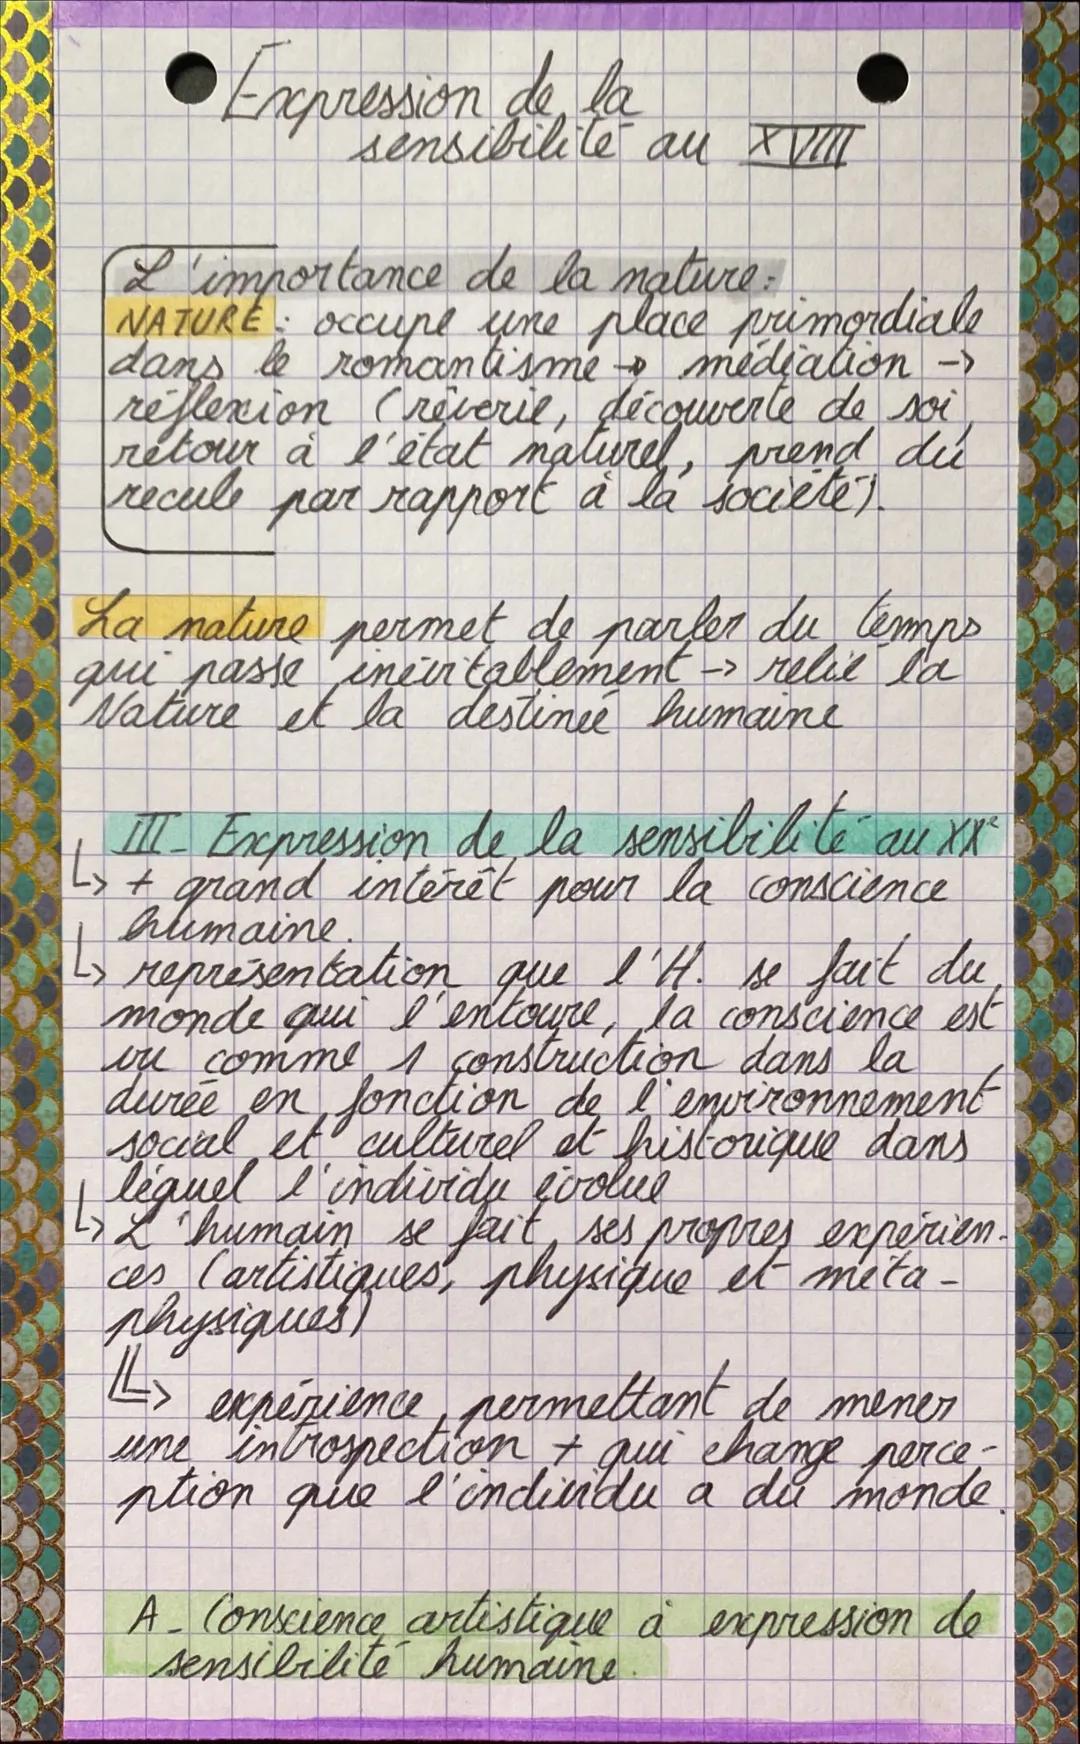 Expression de la
sensibilité au XVIII
L'importance de la nature:
NATURE: occupe une place primordiale
dans le romantisme → médiation →
réflexion (rêverie, découverte de soi,
retour à l'état naturel, prend du
recule par rapport à la société).
La nature permet de parler du temps
qui passe inévitablement → relié la
Nature et la destinée humaine
III- Expression de la sensibilité au XXe
↳ + grand intérêt pour la conscience
humaine.
↳ représentation que l'H. se fait du
monde qui l'entoure, la conscience est
vu comme 1 construction dans la
durée en fonction de l'environnement
social et culturel et historique dans
léquel l'individu évolue
↳ L'humain se fait ses propres expérien-
ces (artistiques, physique et méta-
physiques)
↳ expérience permettant de mener
une introspection + qui change perce-
ption que l'individu a du monde.
A- Conscience artistique à expression de
sensibilité humaine.